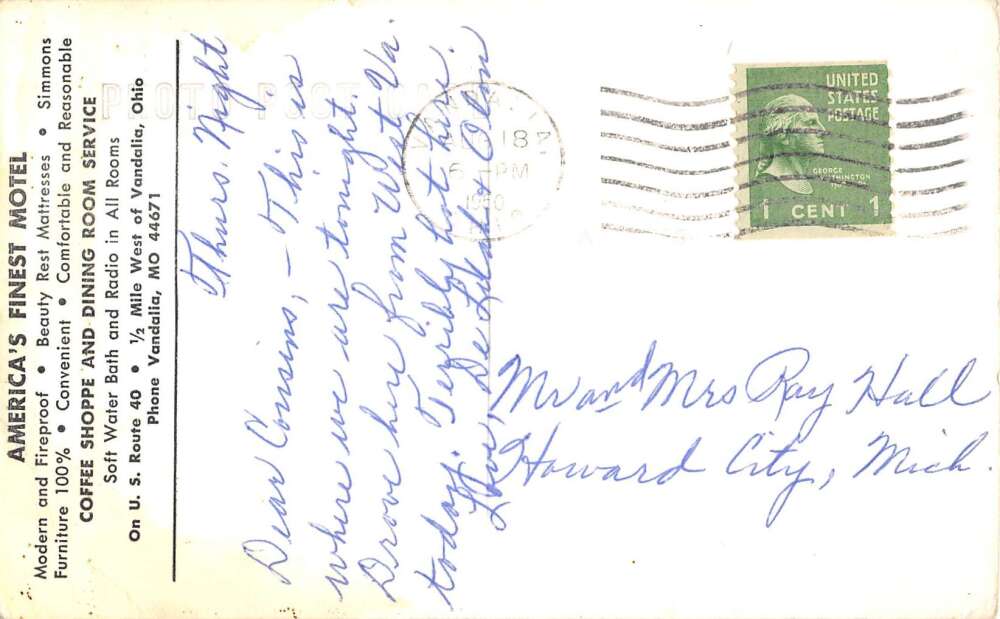 AMERICA'S FINEST MOTEL
Modern and Fireproof • Beauty Rest Mattresses • Simmons
Furniture 100% • Convenient • Comfortable and Reasonable
COFFEE SHOPPE AND DINING ROOM SERVICE
Soft Water Bath and Radio in All Rooms
On U. S. Route 40 • ½ Mile West of Vandalia, Ohio
Phone Vandalia, MO 44671
PHOTO POST CARD
Thurs. Night
Dear Cousins, - This is
where we are tonight.
Drove here from West Va.
today. Terribly hot here.
Love, De Lilah & Olon
18
6 PM
1960
UNITED
STATES
POSTAGE
GEORGE
1 CENT 1
Mr and Mrs Ray Hall
Howard City, Mich.